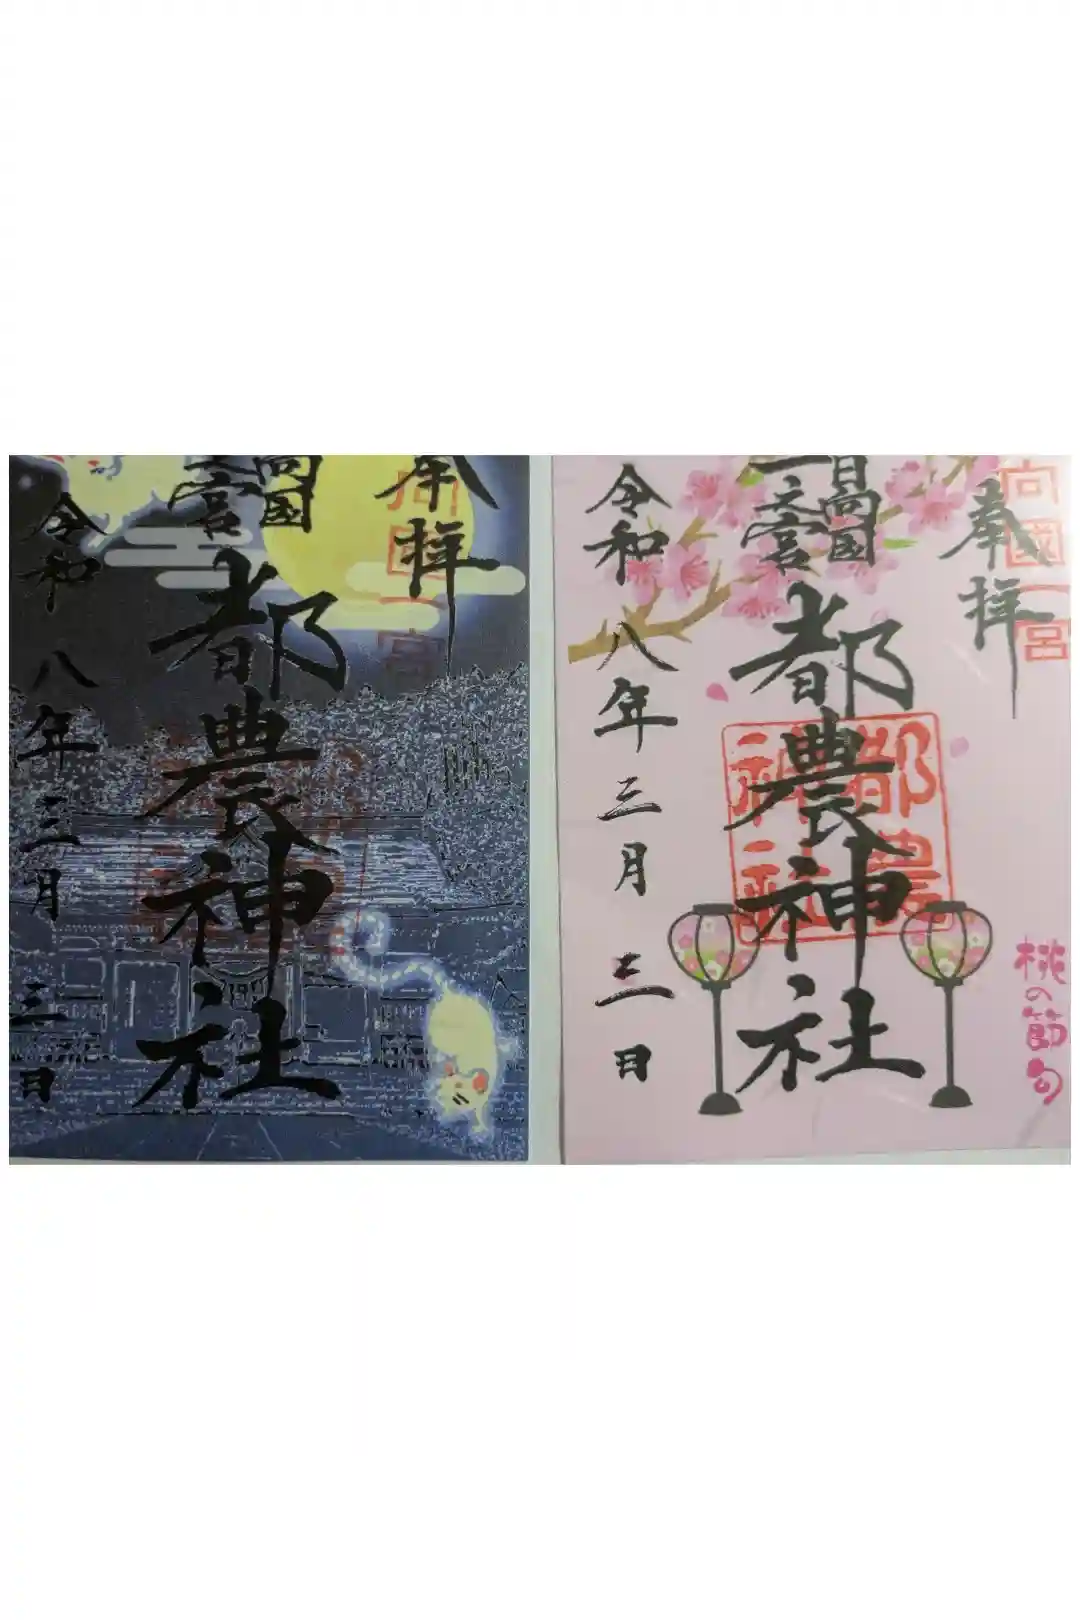 奉拝
日向国
一之宮
都農神社
令和八年三月三日
奉拝
日向国
一之宮
都農神社
令和八年三月三日
向國一宮
都農
神社
桃の節句